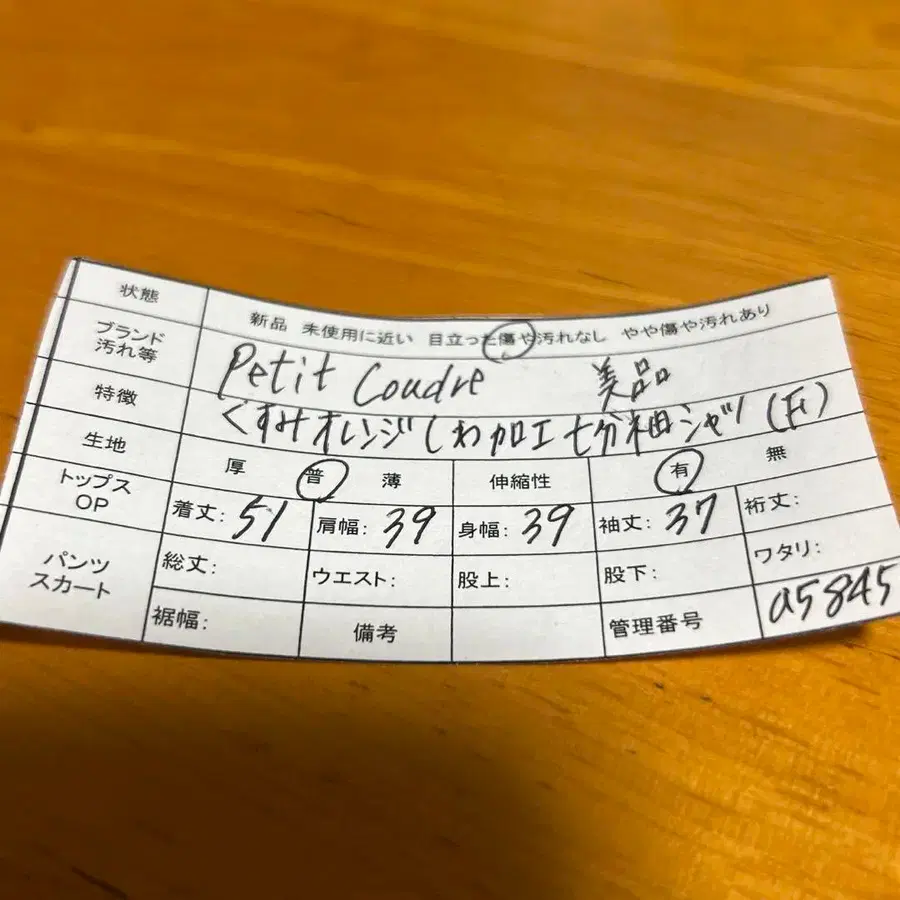 状態 新品 未使用に近い 目立った傷や汚れなし やや傷や汚れあり
ブランド 汚れ等 Petit Coudre 美品
特徴 くすみオレンジしわ加工七分袖シャツ (F)
生地 厚 普 薄 伸縮性 有 無
トップス OP 着丈: 51 肩幅: 39 身幅: 39 袖丈: 37 裄丈:
パンツ スカート 総丈: ウエスト: 股上: 股下: ワタリ:
裾幅: 備考 管理番号 a5845